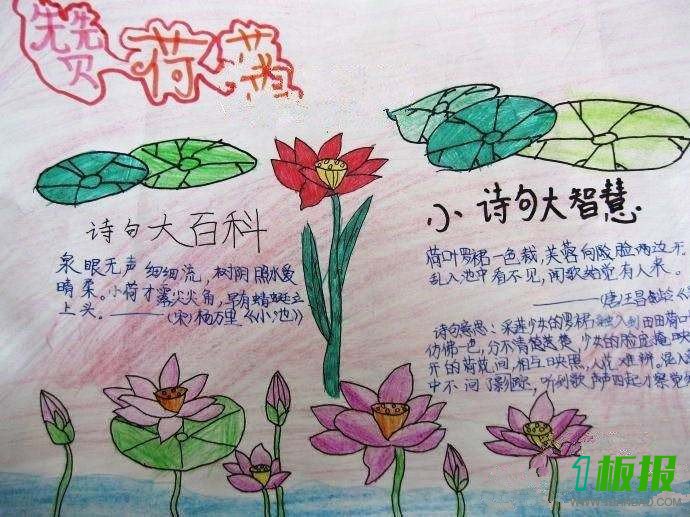 赞荷花
诗句大百科
泉眼无声细细流，树阴照水爱
晴柔。小荷才露尖尖角，早有蜻蜓立
上头。——(宋)杨万里《小池》
小诗句大智慧
荷叶罗裙一色裁，芙蓉向脸两边开
乱入池中看不见，闻歌始觉有人来。
——(唐)王昌龄
诗句意思：采莲少女的罗裙融入到田田荷
仿佛一色，分不清
少女的脸庞掩映
开的荷花间，相互映照，人花难辨。
歌声四起才察觉
1板报